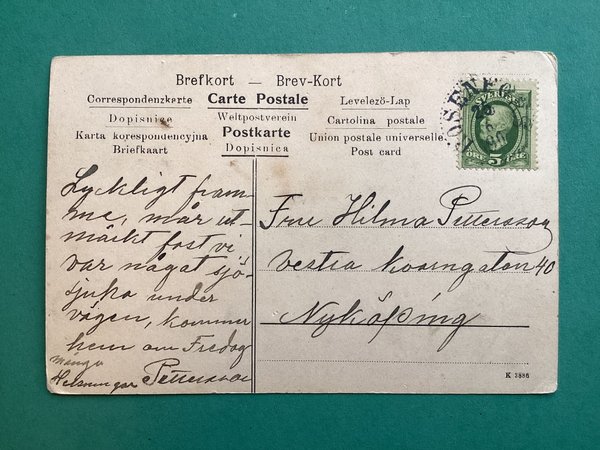 Brefkort — Brev-Kort
Correspondenzkarte Carte Postale Levelező-Lap
Dopisnice Weltpostverein Cartolina postale
Karta korespondencyjna Postkarte Union postale universelle
Briefkaart Dopisnica Post card
SVERIGE
5
ÖRE
Lyckligt fram-
me, mår ut-
märkt fast vi
var något sjö-
sjuka under
vägen, kommer
hem om Fredag
många
Helsningar Pettersson
Fru Hilma Pettersson
Vestra 40
Nyköping
K 3886